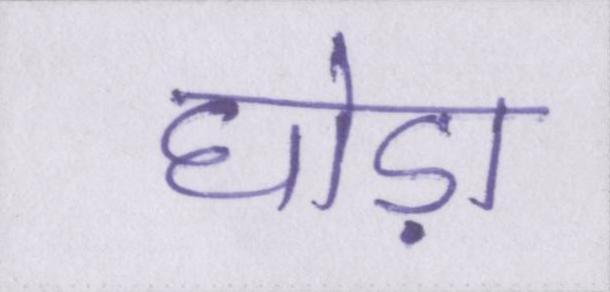 घोड़ा